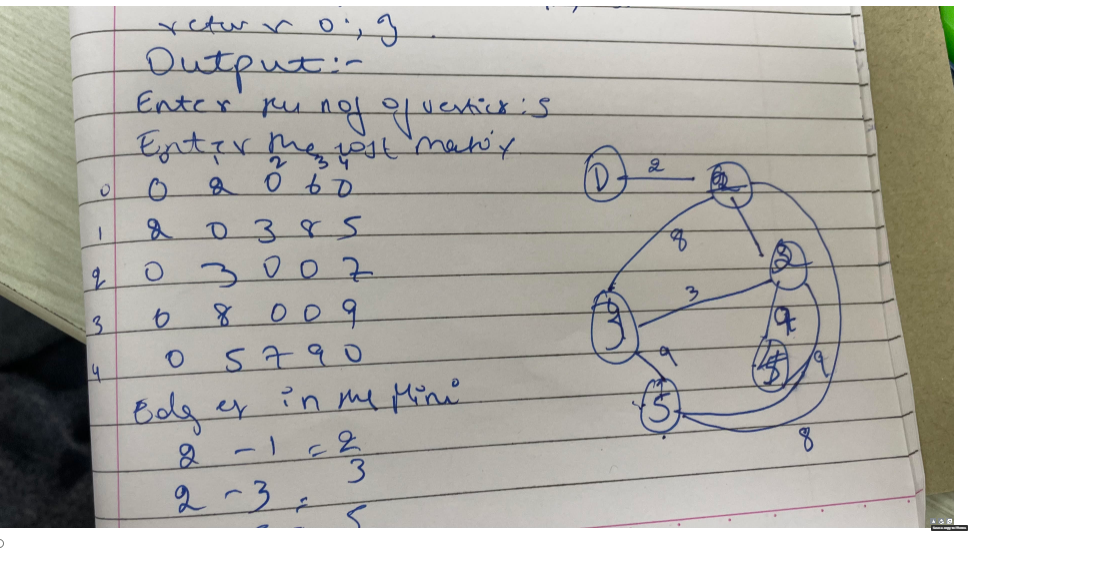 retur r 0 ; }
Output :-
Enter no of of vertices : 5
Enter the cost matrix
1 2 3 4
0 0 2 0 6 0
1 2 0 3 8 5
2 0 3 0 0 7
3 6 8 0 0 9
4 0 5 7 9 0
Edg es in the Mini
2 - 1 = 2
2 - 3 = 3
5
2
8
3
9
9
8
3
5